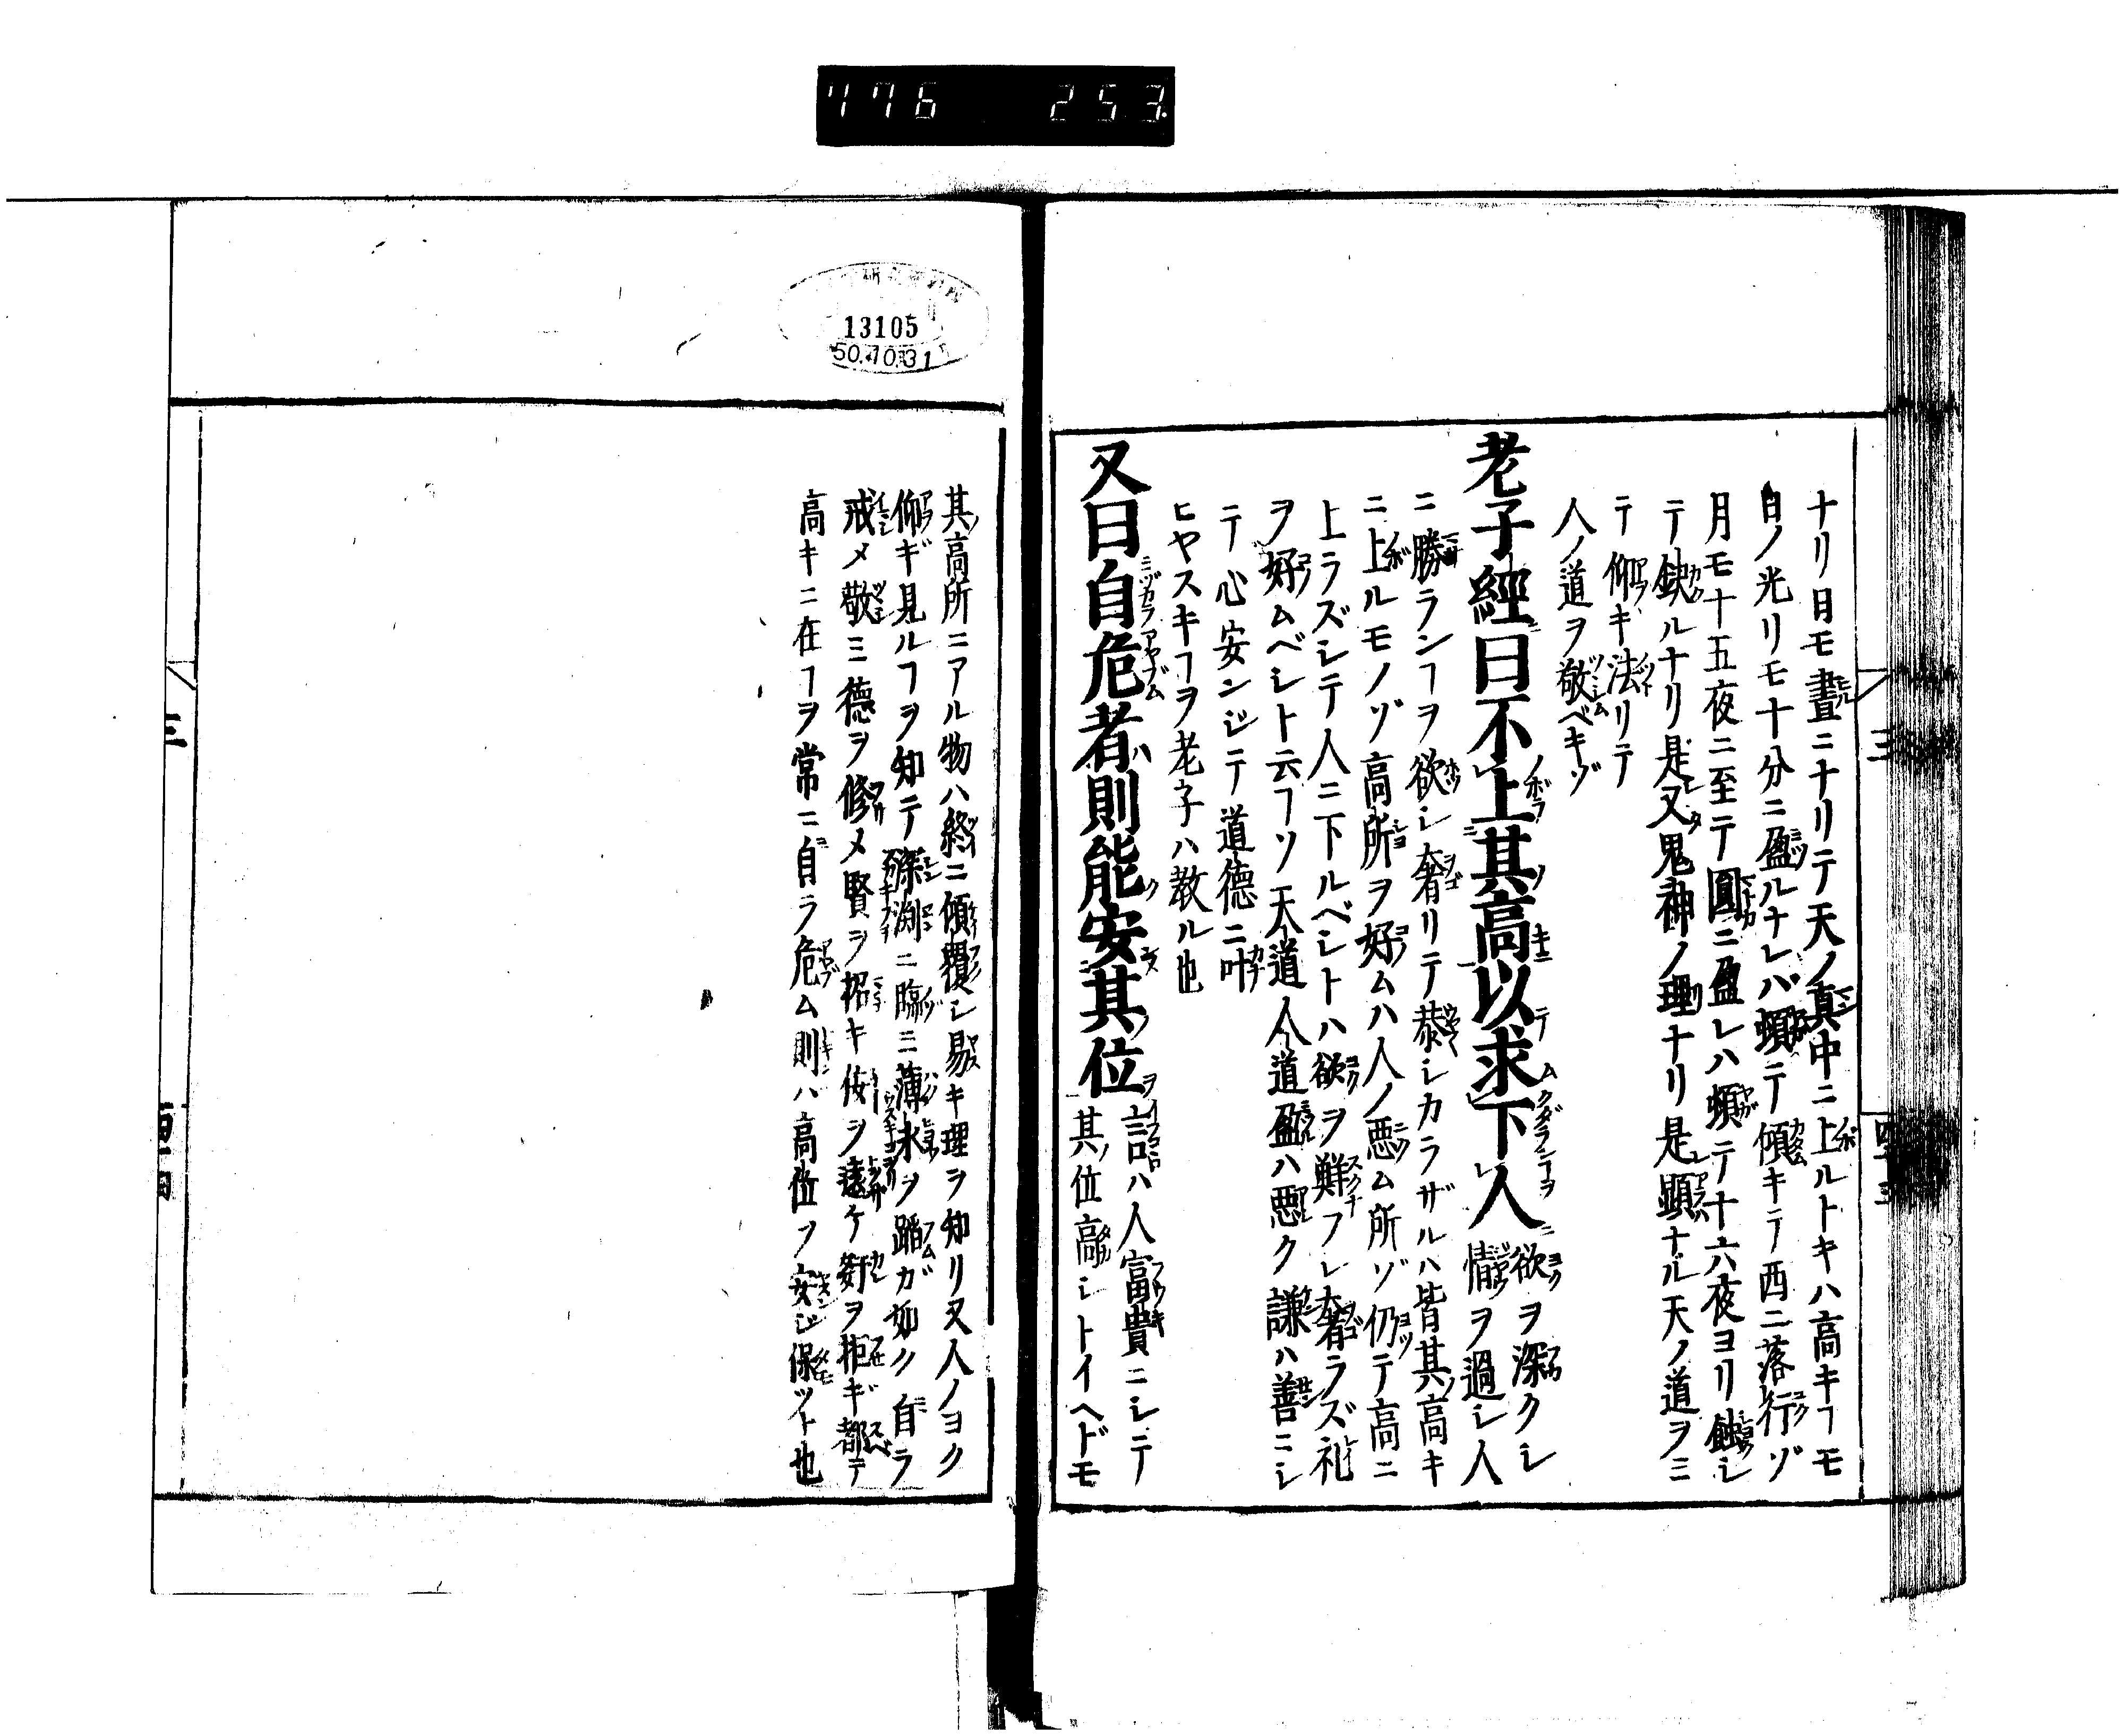 776 253.
ナリ日モ晝ニナリテ天ノ真中ニ上ルトキハ高キヿモ
日ノ光リモ十分ニ盈ルナレバ頓テ傾キテ西ニ落行ゾ
月モ十五夜ニ至テ圓ニ盈レハ頓テ十六夜ヨリ
テ鈌ルナリ是又鬼神ノ理ナリ是顕ナル天ノ道ヲミ
テ仰キ法リテ
人ノ道ヲ敬ベキゾ
老子經曰不上其高以求下人
欲ヲ深クシ
情ヲ過シ人
ニ勝ランヿヲ欲シ奢リテ恭シカラザルハ皆其高キ
ニ上ルモノゾ高所ヲ好ムハ人ノ悪ム所ゾ仍テ高ニ
上ラズシテ人ニ下ルベシトハ欲ヲ鮮フシ奢ラズ礼
ヲ好ムベシト云フソ天道人道盈ハ悪ク謙ハ善ニシ
テ心安ンジテ道德ニ叶
ヒヤスキヿヲ老子ハ教ル也
又曰自危者則能安其位
言ハ人富貴ニシテ
其位高シトイヘドモ
三
其高所ニアル物ハ終ニ傾覆シ易キ理ヲ知リ又人ノヨク
仰ギ見ルヿヲ知テ深渕ニ臨ミ薄氷ヲ踏ガ如ク自ラ
戒メ敬ミ德ヲ修メ賢ヲ招キ侫ヲ遠ケ姧ヲ拒ギ都テ
高キニ在ヿヲ常ニ自ラ危ム則ハ高位ヲ安シ保ツト也
三
13105
50.10.31